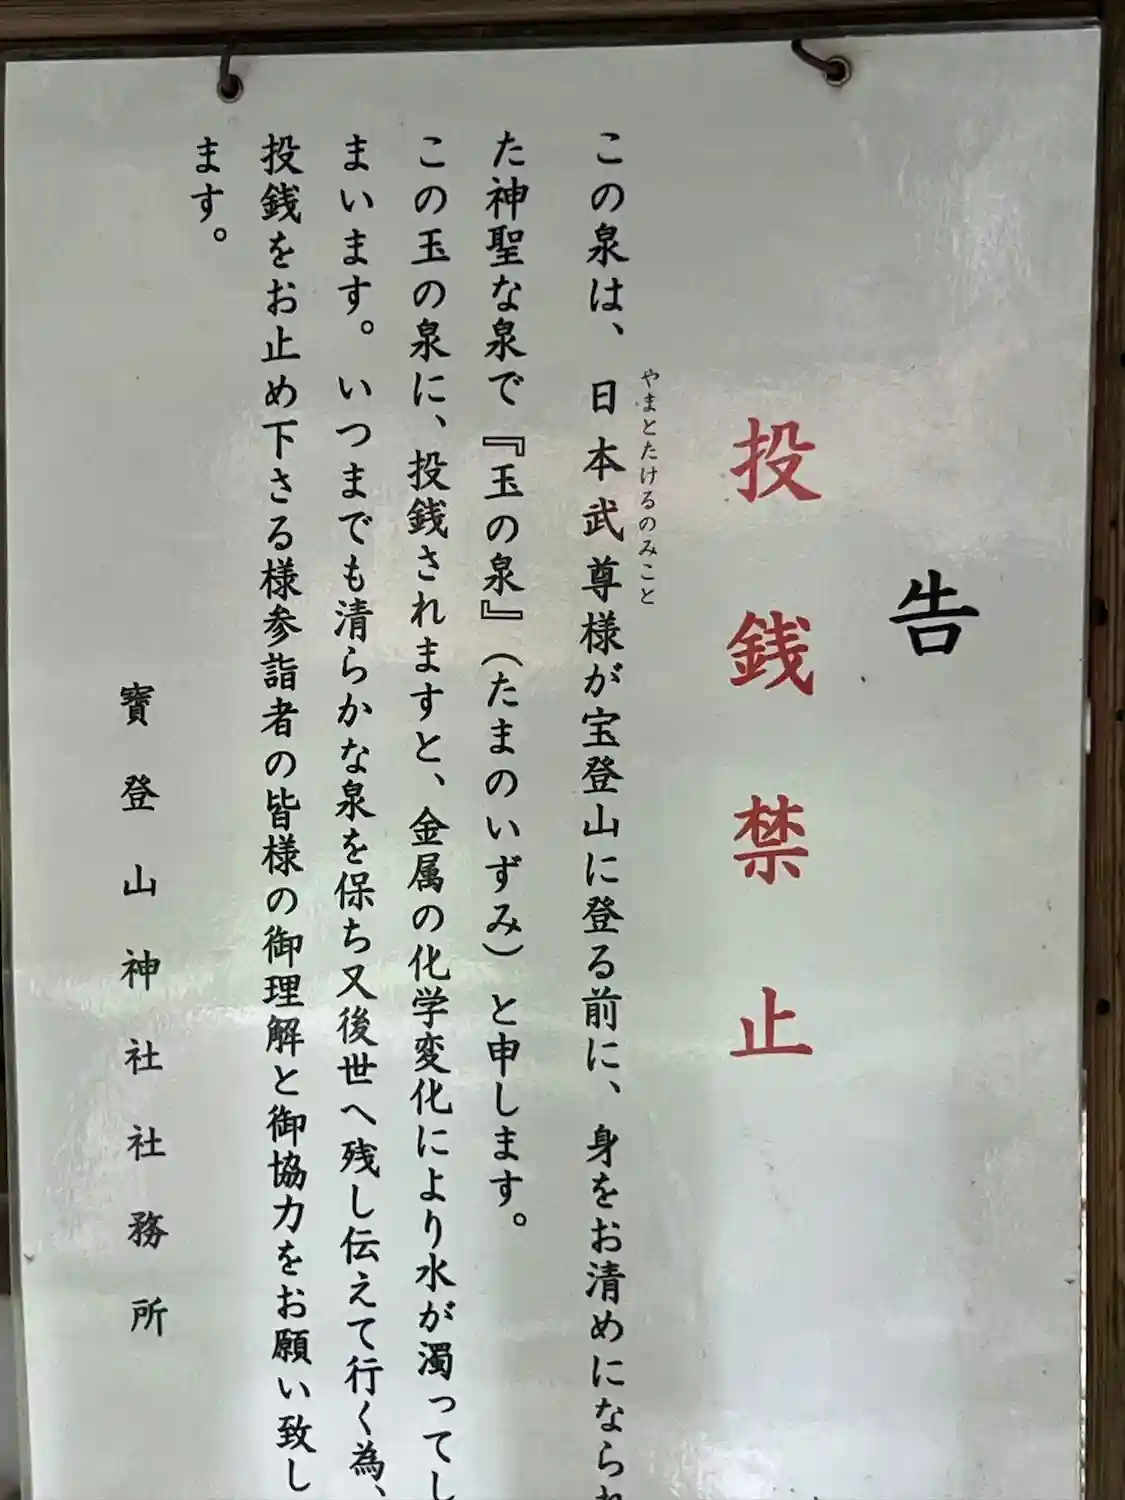 告
投銭禁止
やまとたけるのみこと
この泉は、日本武尊様が宝登山に登る前に、身をお清めになられ
た神聖な泉で『玉の泉』（たまのいずみ）と申します。
この玉の泉に、投銭されますと、金属の化学変化により水が濁ってし
まいます。いつまでも清らかな泉を保ち又後世へ残し伝えて行く為、
投銭をお止め下さる様参詣者の皆様の御理解と御協力をお願い致し
ます。
寶登山神社社務所